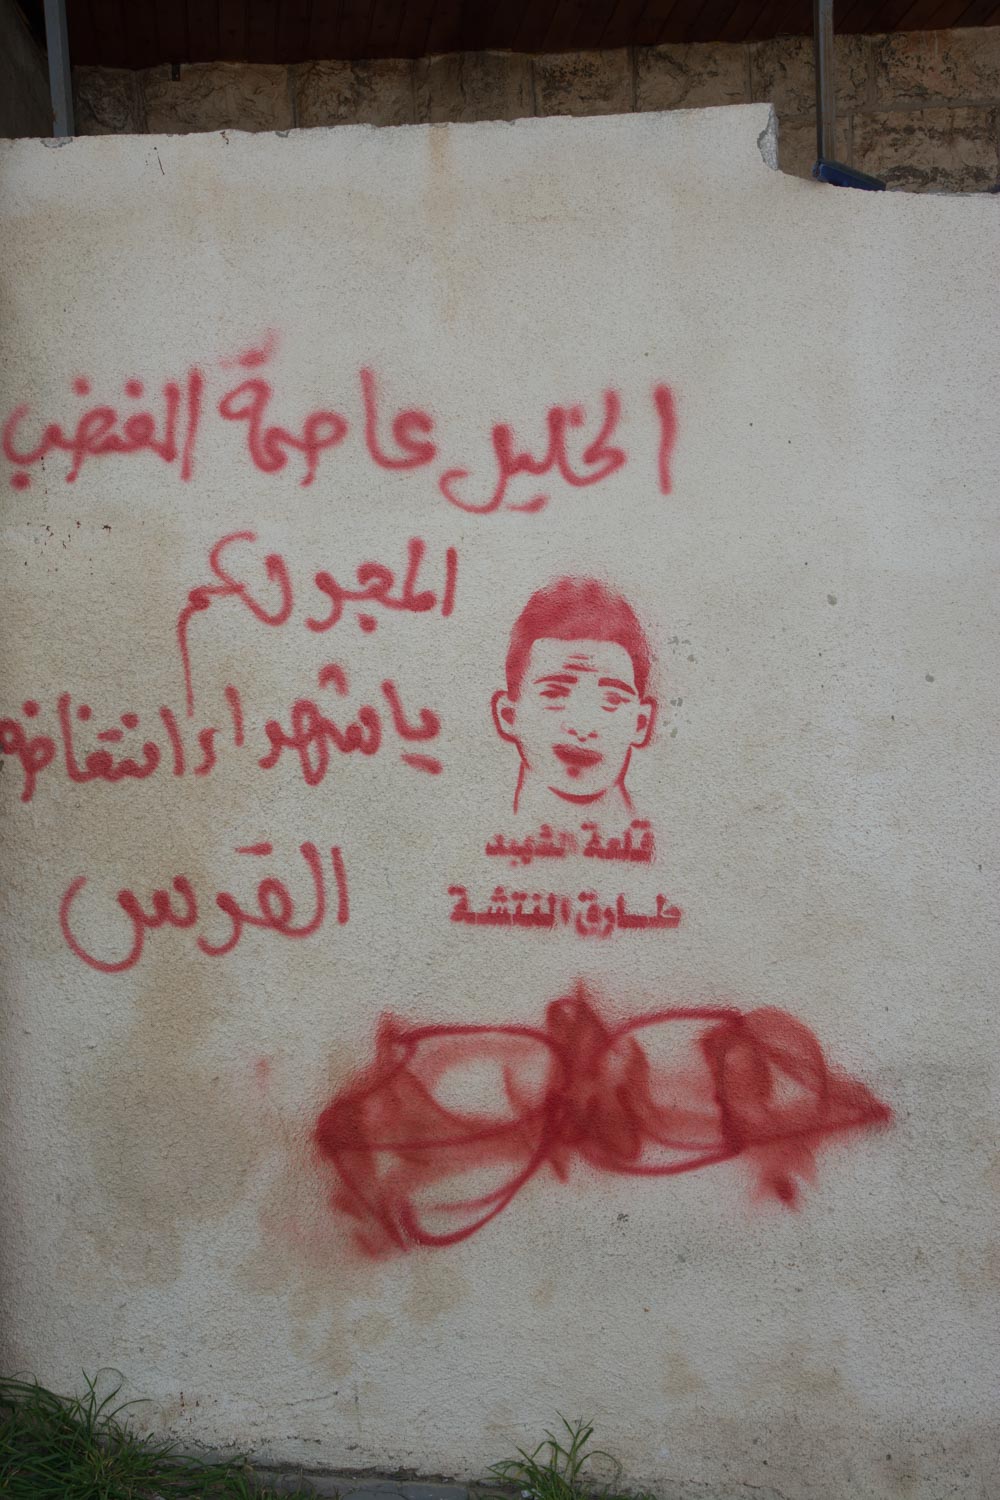 الخليل عاصمة الغضب
المجد لكم
يا شهداء انتفاضة
القدس
قلعة الشهيد
طارق النتشة